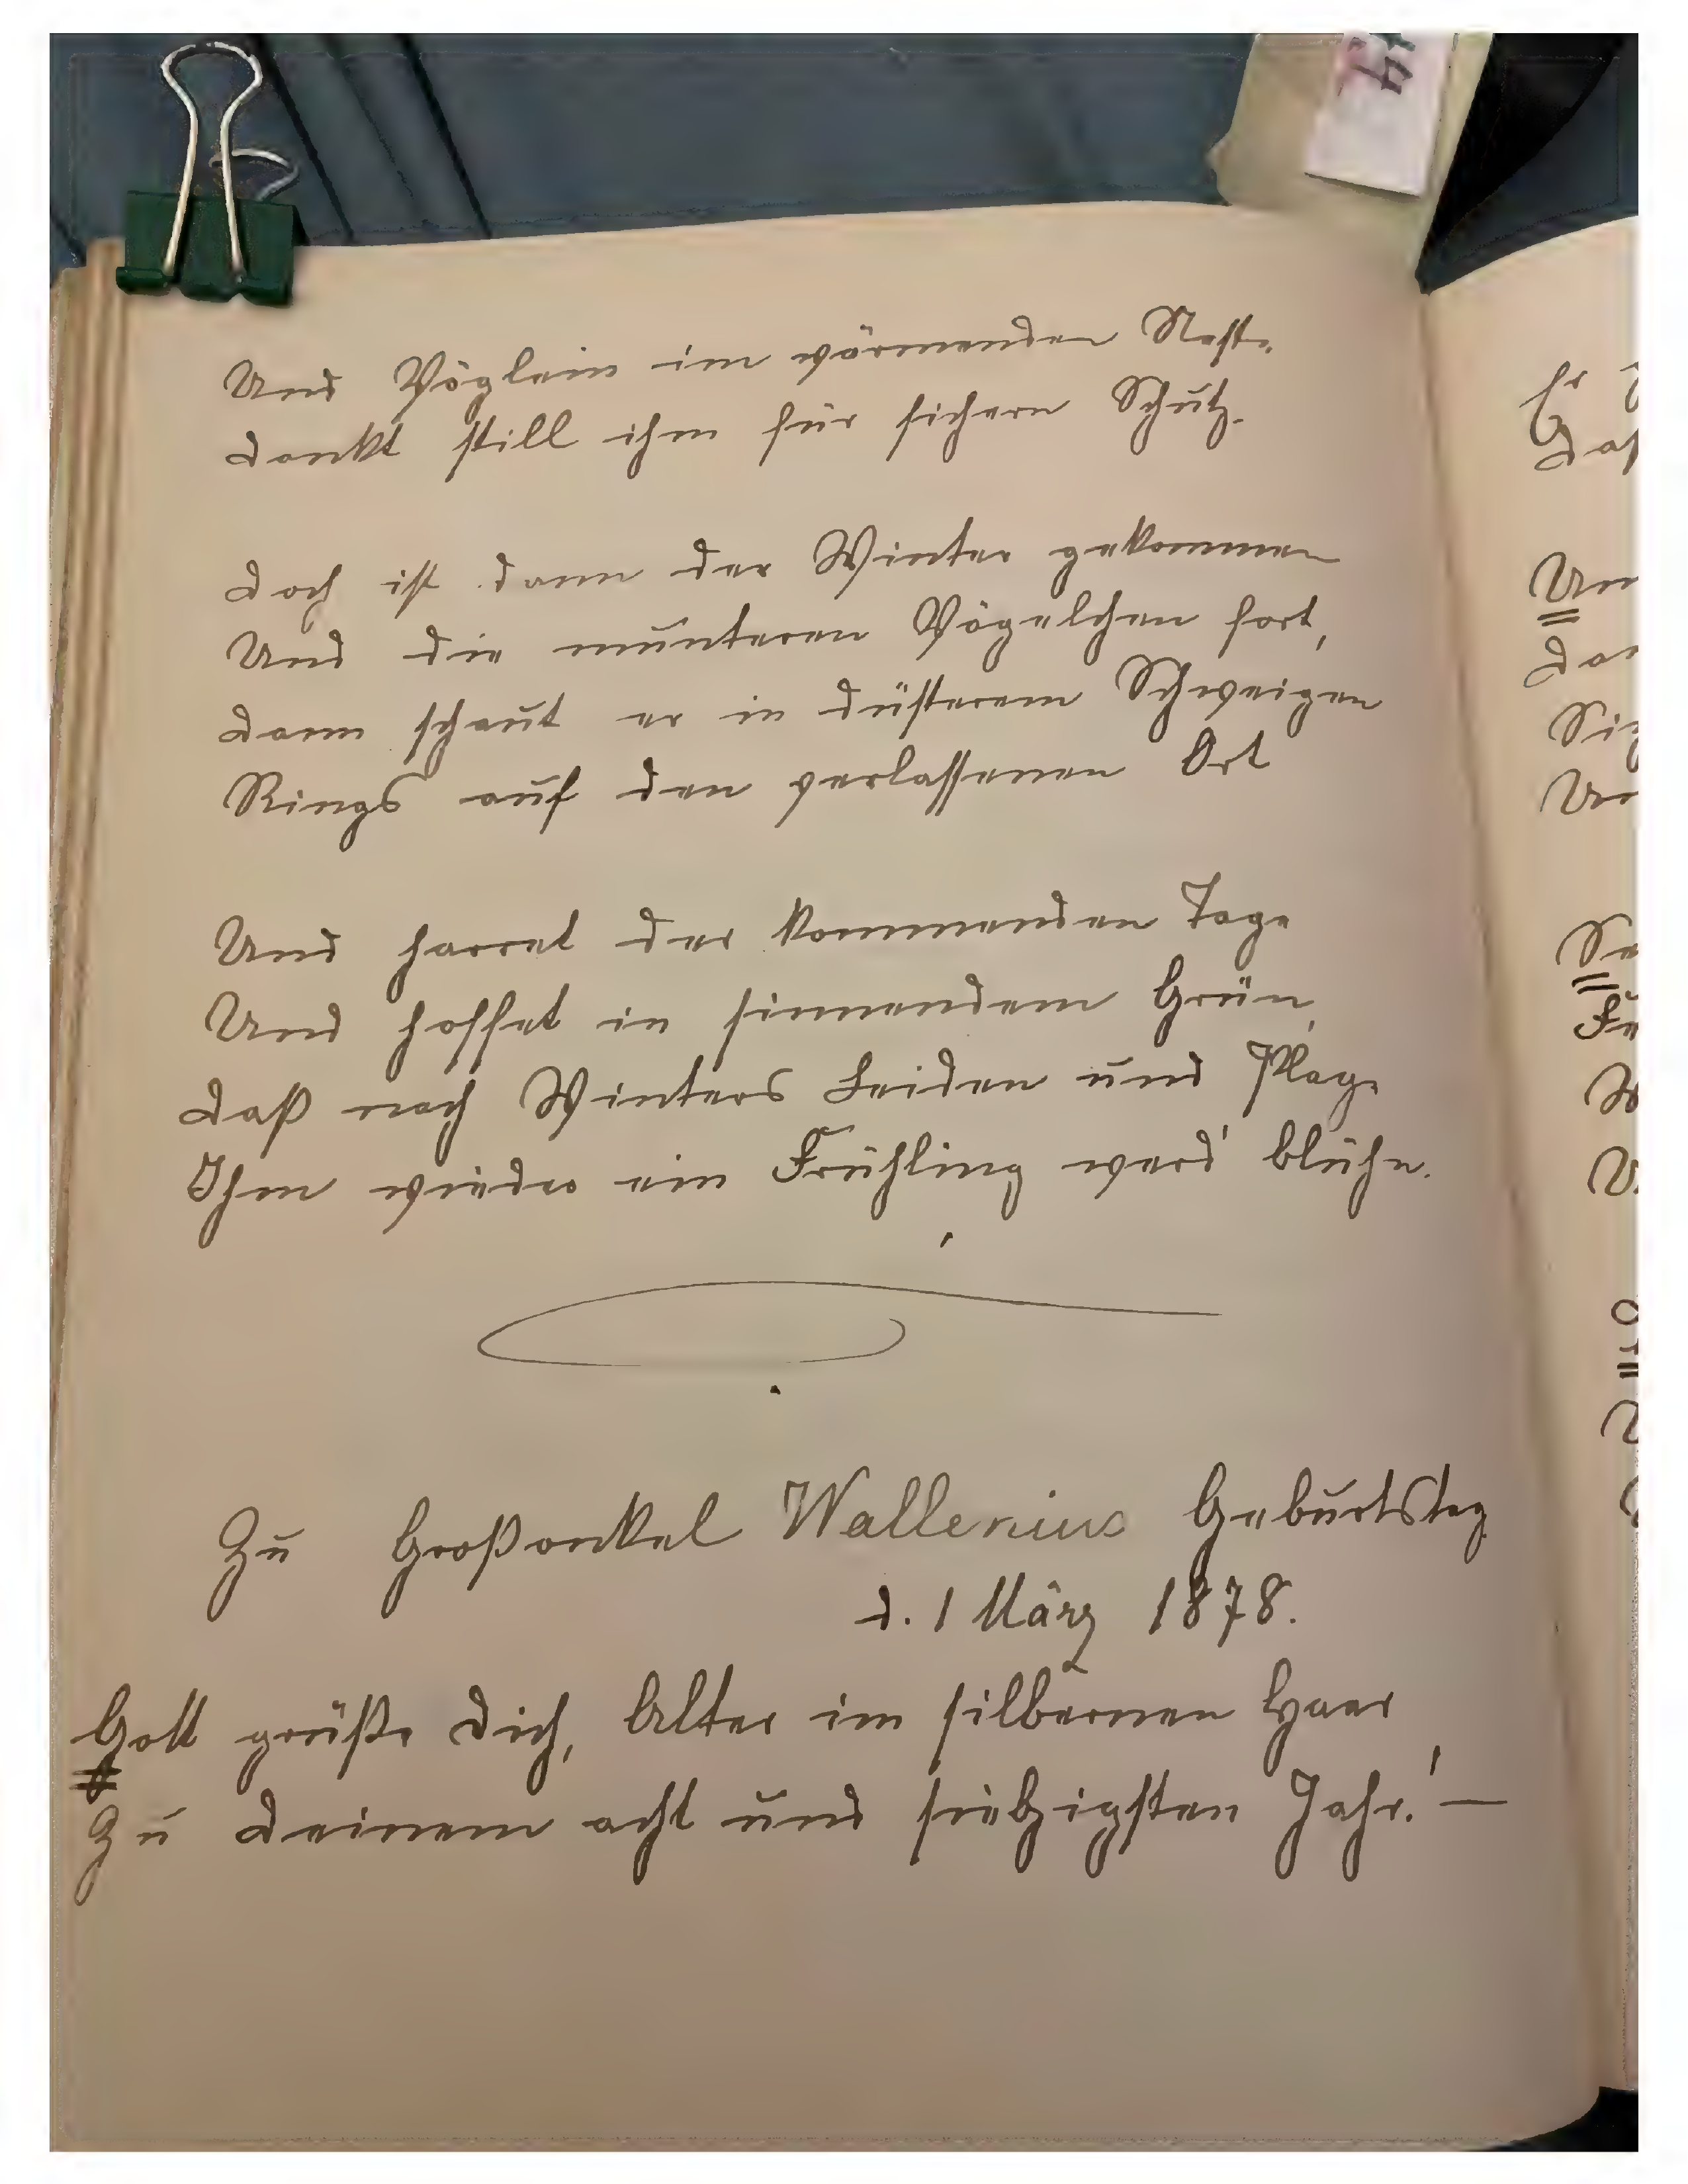 Und Vöglein im wärmenden Neste
dankt still ihm für sichern Schutz.
doch ist dann der Winter gekommen
Und die munteren Vögelchen fort,
dann schaut er in düsterem Schweigen
Rings auf den verlassenen Ort
Und harret der kommenden Tage
Und hoffet in sinnendem Grün,
daß nach Winters Leiden und Plage
Ihm wieder ein Frühling werd' blühn.
Zu Großonkel Wallenius Geburtstag
d. 1 März 1878.
Gott grüße dich, Alter im silbernen Haar,
Zu deinem acht und siebzigsten Jahr! —